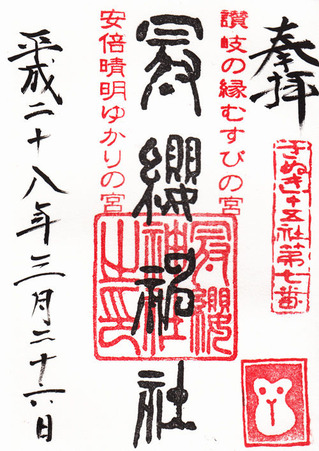 奉拝
さぬき十五社第七番
讃岐の縁むすびの宮
冠纓神社
安倍晴明ゆかりの宮
冠纓神社之印
平成二十八年三月二十六日